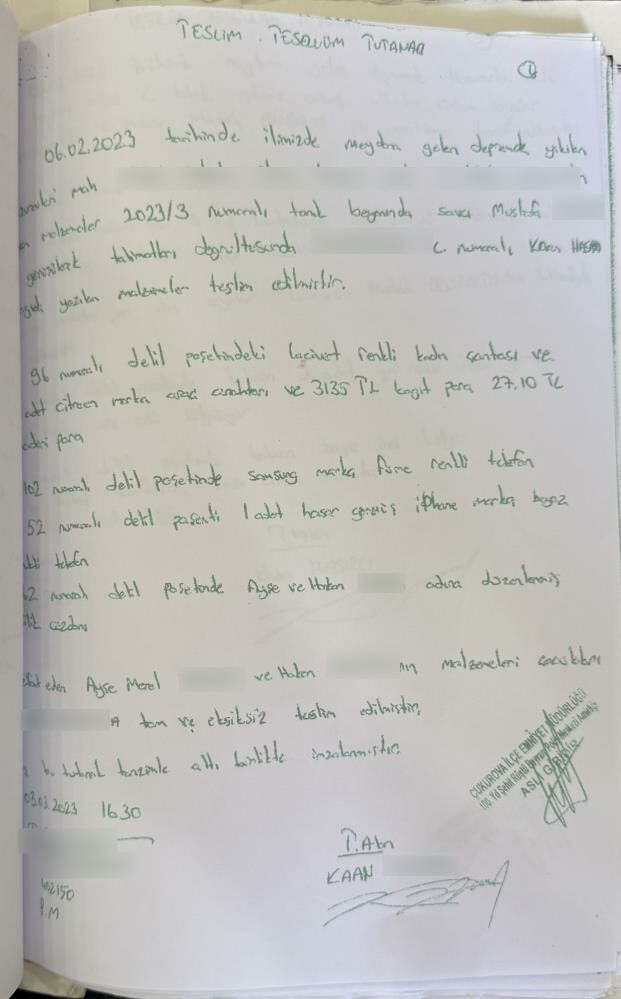 TESLİM . TESELLÜM TUTANAĞ
1
06.02.2023 tarihinde ilimizde meydana gelen depremde yıkılan
mah
malzemeler 2023/3 numaralı tanık beyanında savcı Mustafa
talimatları doğrultusunda numaralı KAAN HASAN
yazılan malzemeler teslim edilmiştir.
96 numaralı delil poşetindeki lacivert renkli kadın çantası ve
adet citroen marka araç anahtarı ve 3135 TL kağıt para 27.10 TL
para
102 numaralı delil poşetinde samsung marka füme renkli telefon
52 numaralı delil poşenti 1 adet hasar görmüş iphone marka beyaz
telefon
2 numaralı delil poşetinde Ayşe ve Hakan adına düzenlenmiş
cüzdanı
eden Ayşe Meral ve Hakan ın malzemeleri çocukları
A tam ve eksiksiz teslim edilmiştir.
bu tutanak tanzimle altı birlikte imzalanmıştır.
03.03.2023 1630
ÇUKUROVA İLÇE EMNİYET MÜDÜRLÜĞÜ
100. Yıl Şehit Polis Merkezi Amirliği
ASLI GİBİDİR
T. Alan
KAAN
402150
P.M